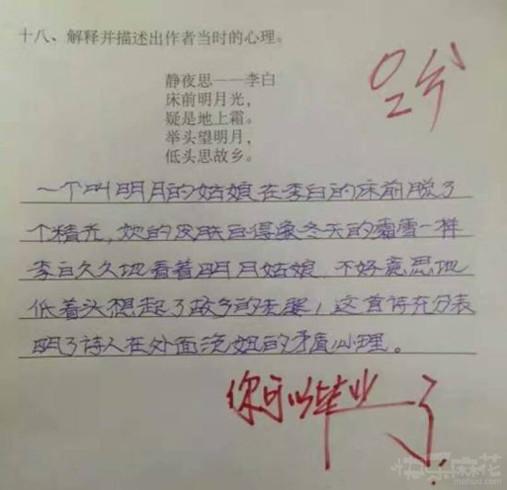 十八、解释并描述出作者当时的心理。
静夜思——李白
床前明月光，
疑是地上霜。
举头望明月，
低头思故乡。
一个叫明月的姑娘在李白的床前脱了
个精光，她的皮肤白得象冬天的霜雪一样
李白久久地看着明月姑娘，不好意思地
低着头想起了故乡的老婆，这首诗充分表
明了诗人在外面泡妞的矛盾心理。
你可以毕业了
快乐麻花